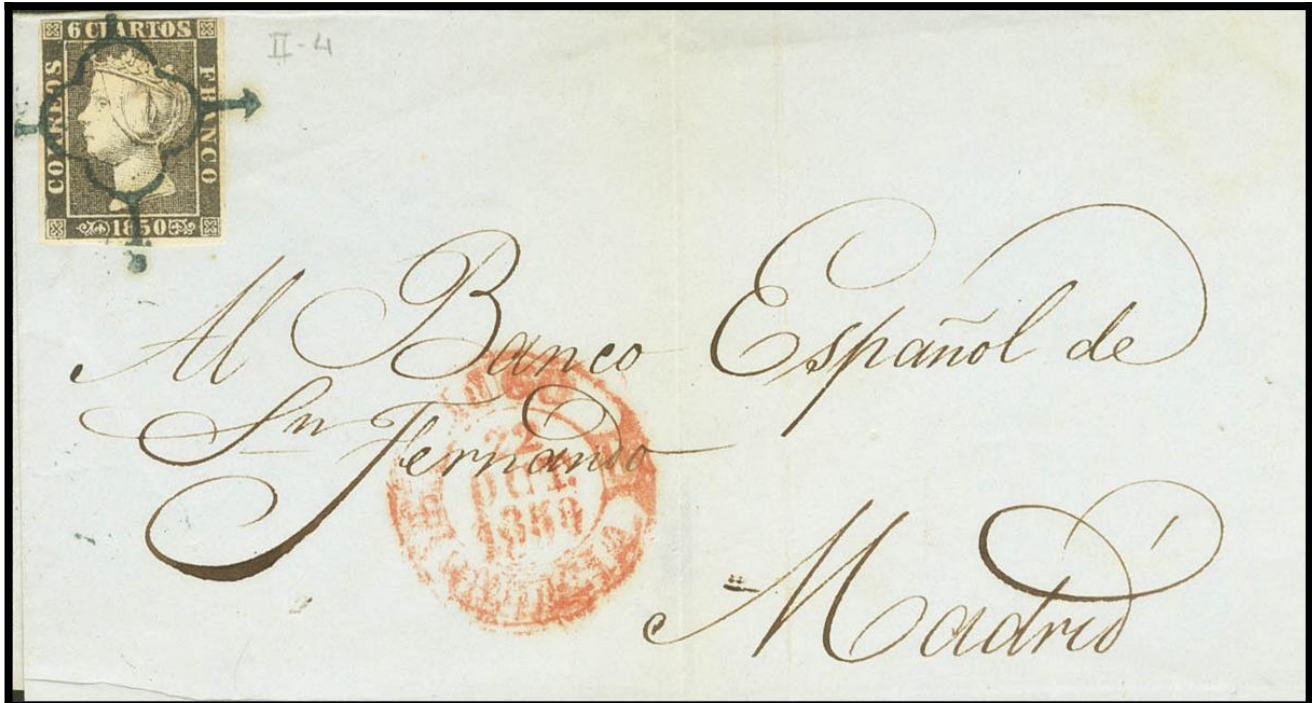 6 CUARTOS
CORREOS
FRANCO
1850
II-4
Al Banco Español de
Sn Fernando
22
1850
Madrid